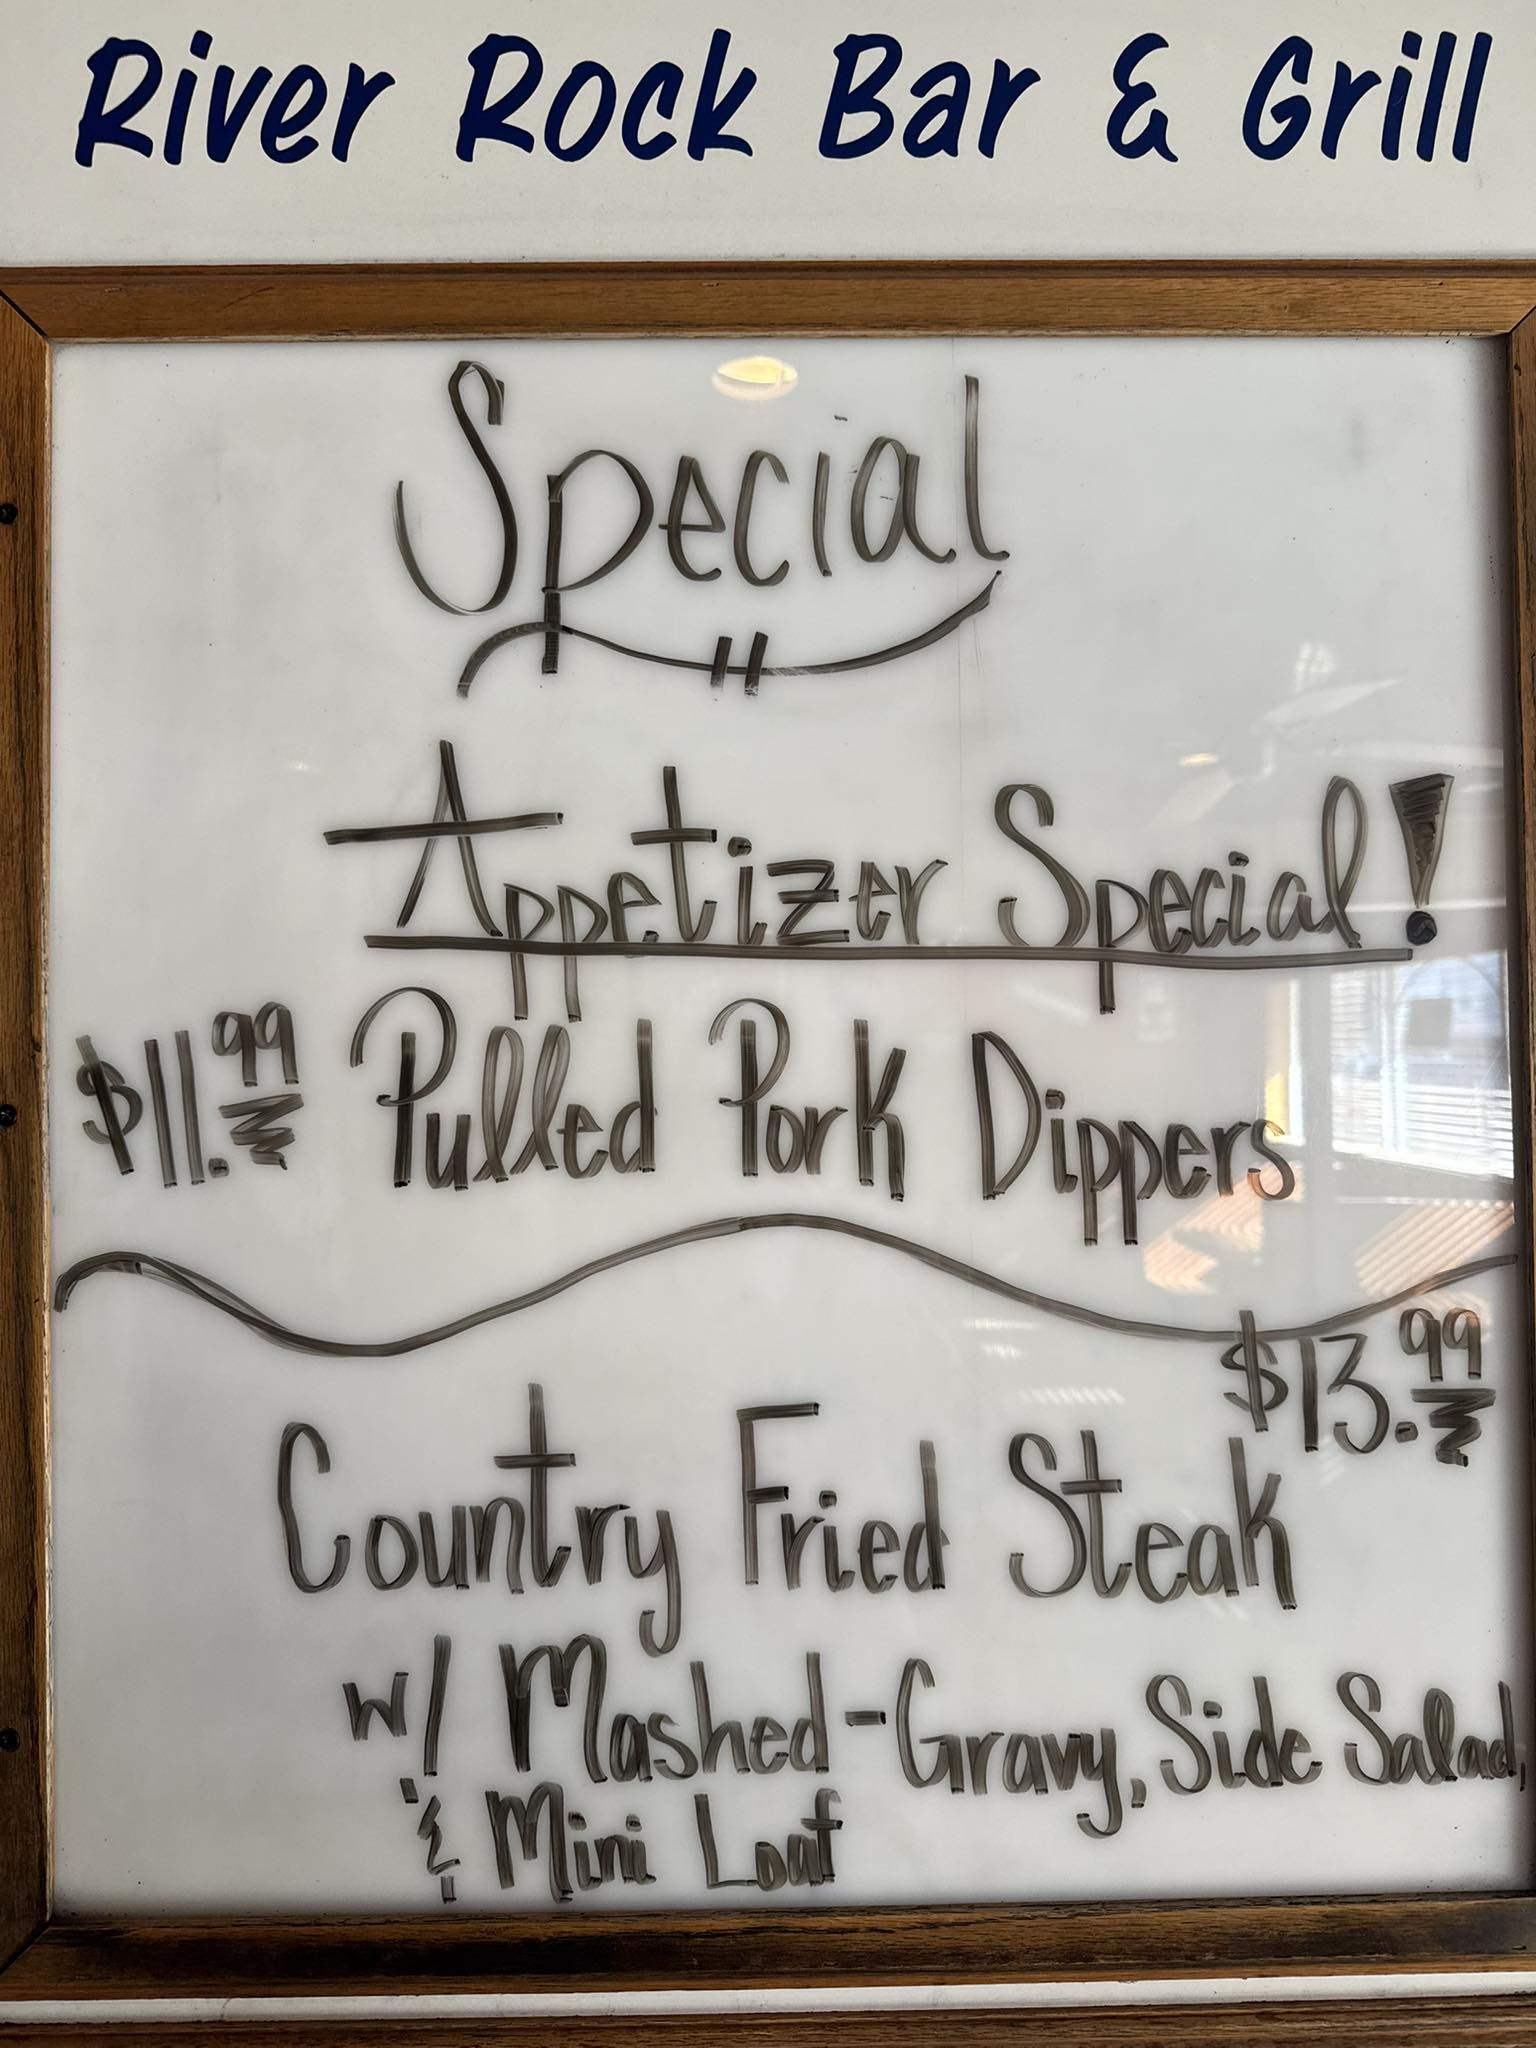 River Rock Bar & Grill
Special
Appetizer Special!
$11.99 Pulled Pork Dippers
$13.99
Country Fried Steak
w/ Mashed-Gravy, Side Salad,
& Mini Loaf